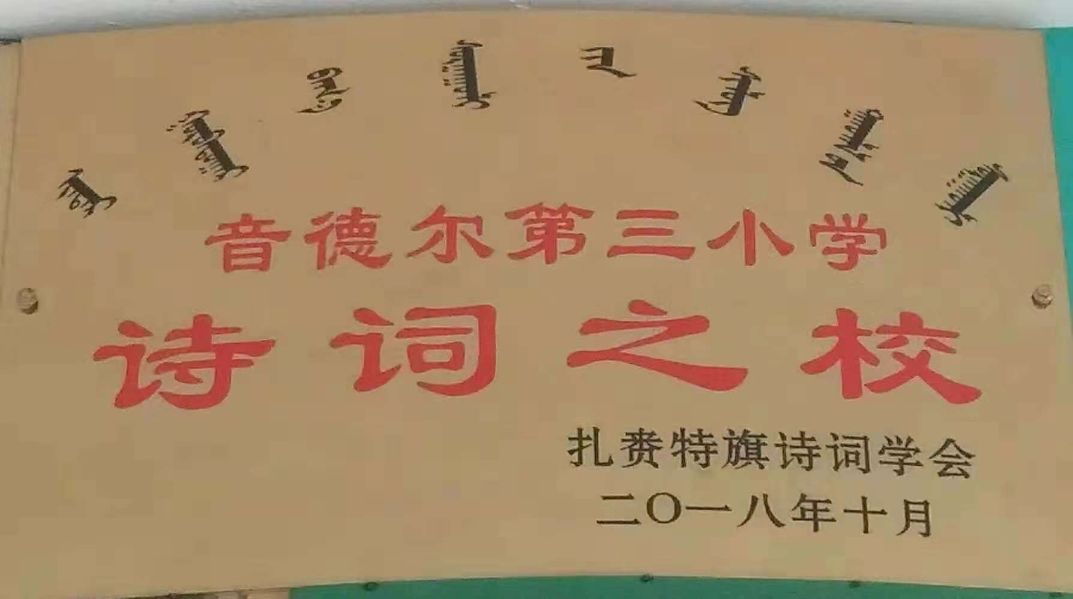 音德尔第三小学
诗词之校
扎赉特旗诗词学会
二〇一八年十月